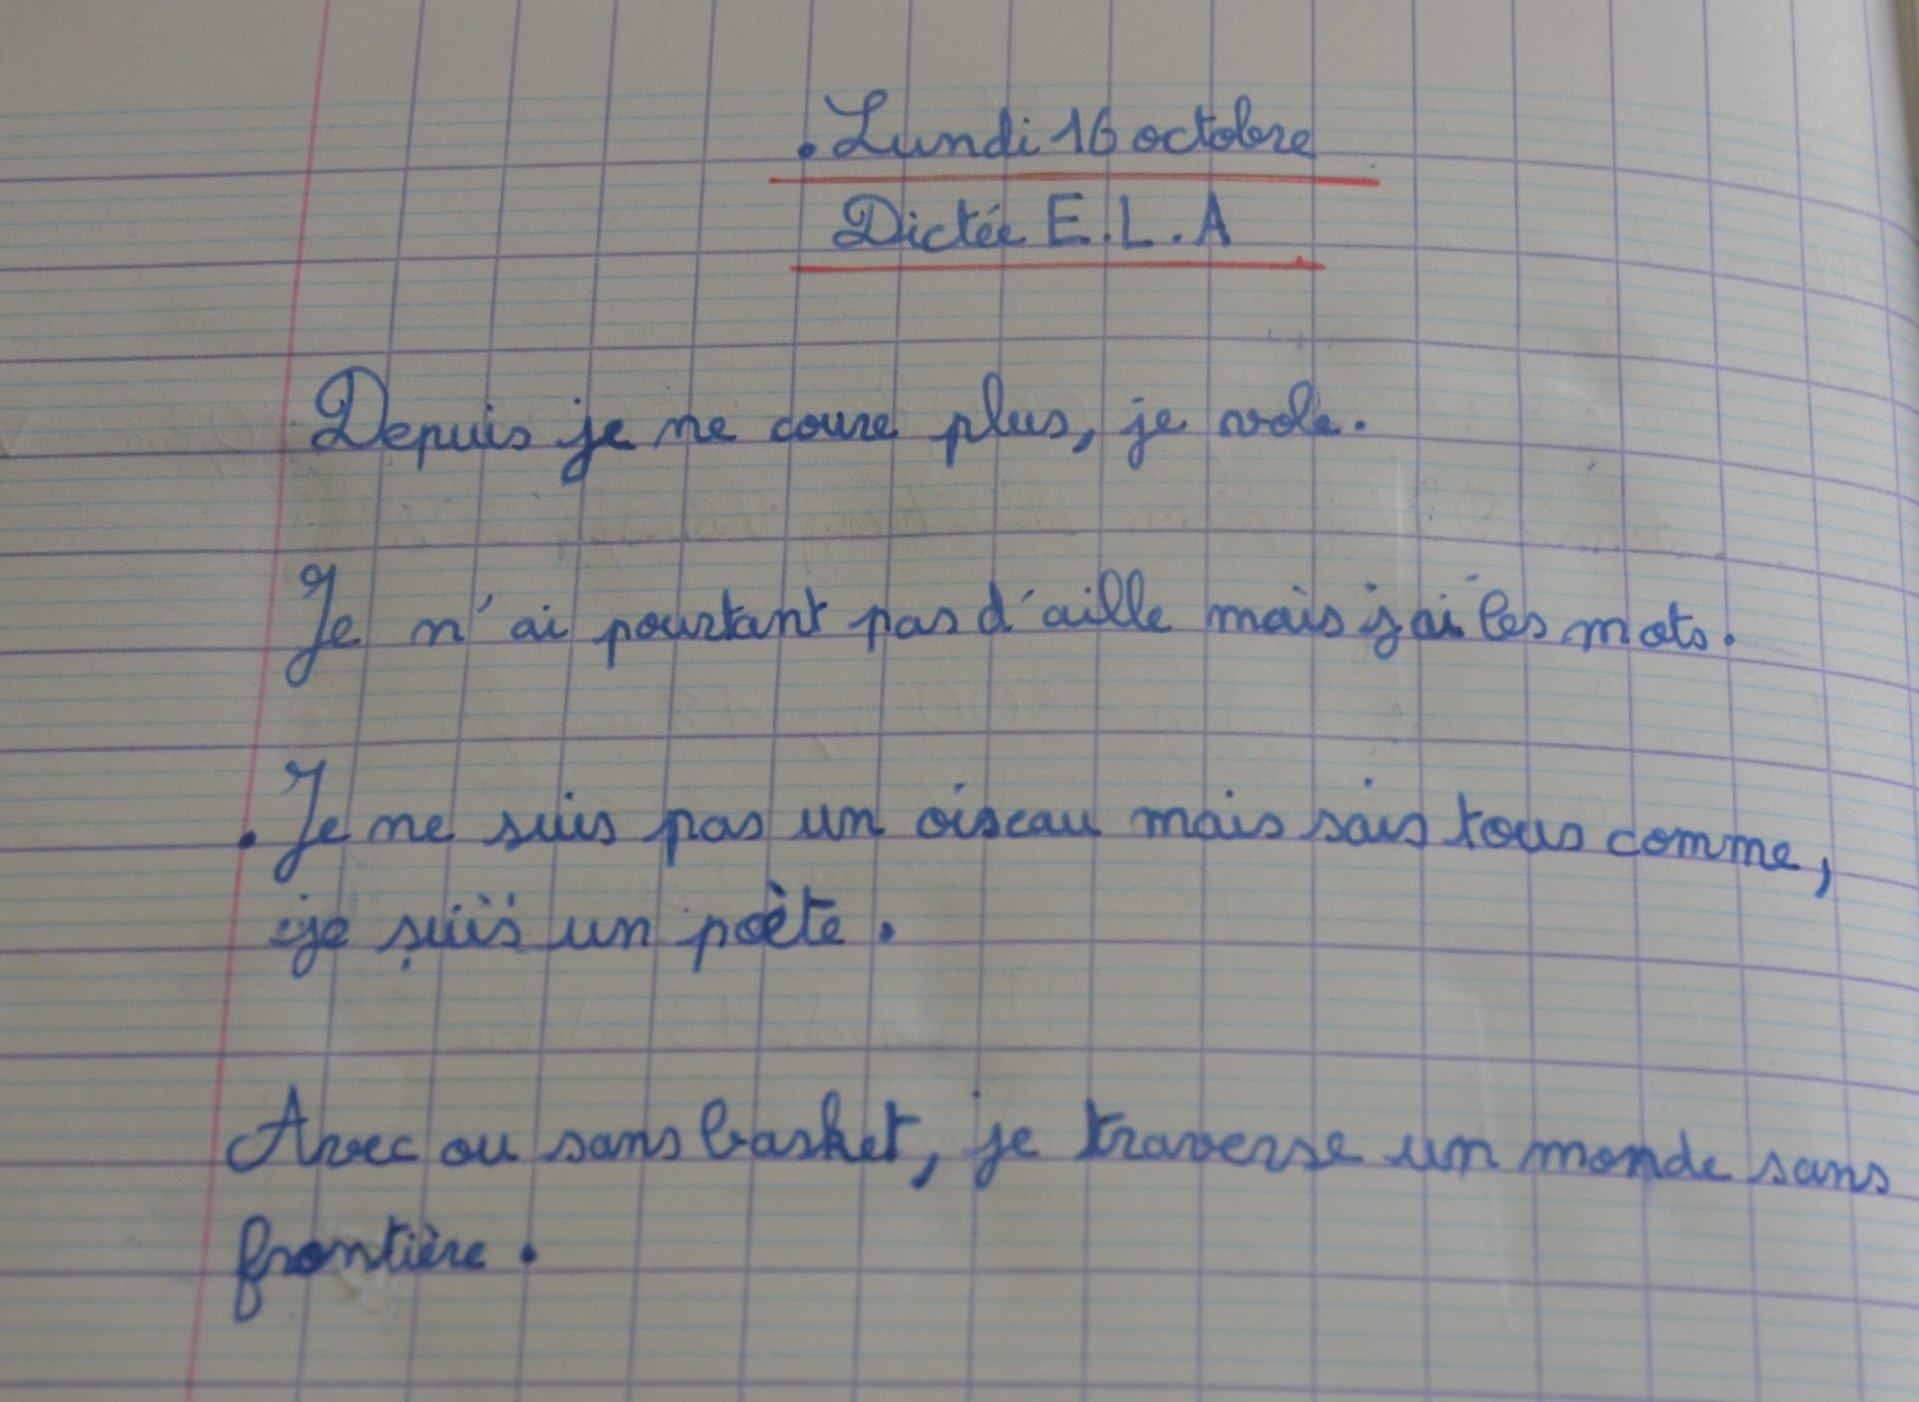 . Lundi 16 octobre
Dictée E.L.A
Depuis je ne coure plus, je vole.
Je n'ai pourtant pas d'aille mais j'ai les mots.
. Je ne suis pas un oiseau mais sais tous comme,
je suis un poète.
Avec ou sans basket, je traverse un monde sans
frontière.